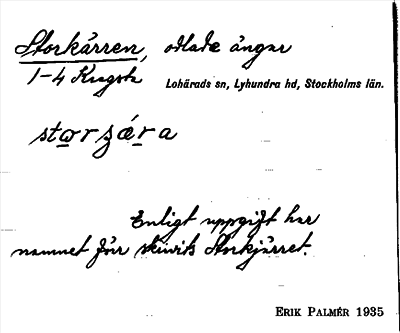 Storkärren, odlade ängar
1-4 Krägsta
Lohärads sn, Lyhundra hd, Stockholms län.
storʒǽra
Enligt uppgift har
namnet förr skrivits Storkjärret.
ERIK PALMÉR 1935